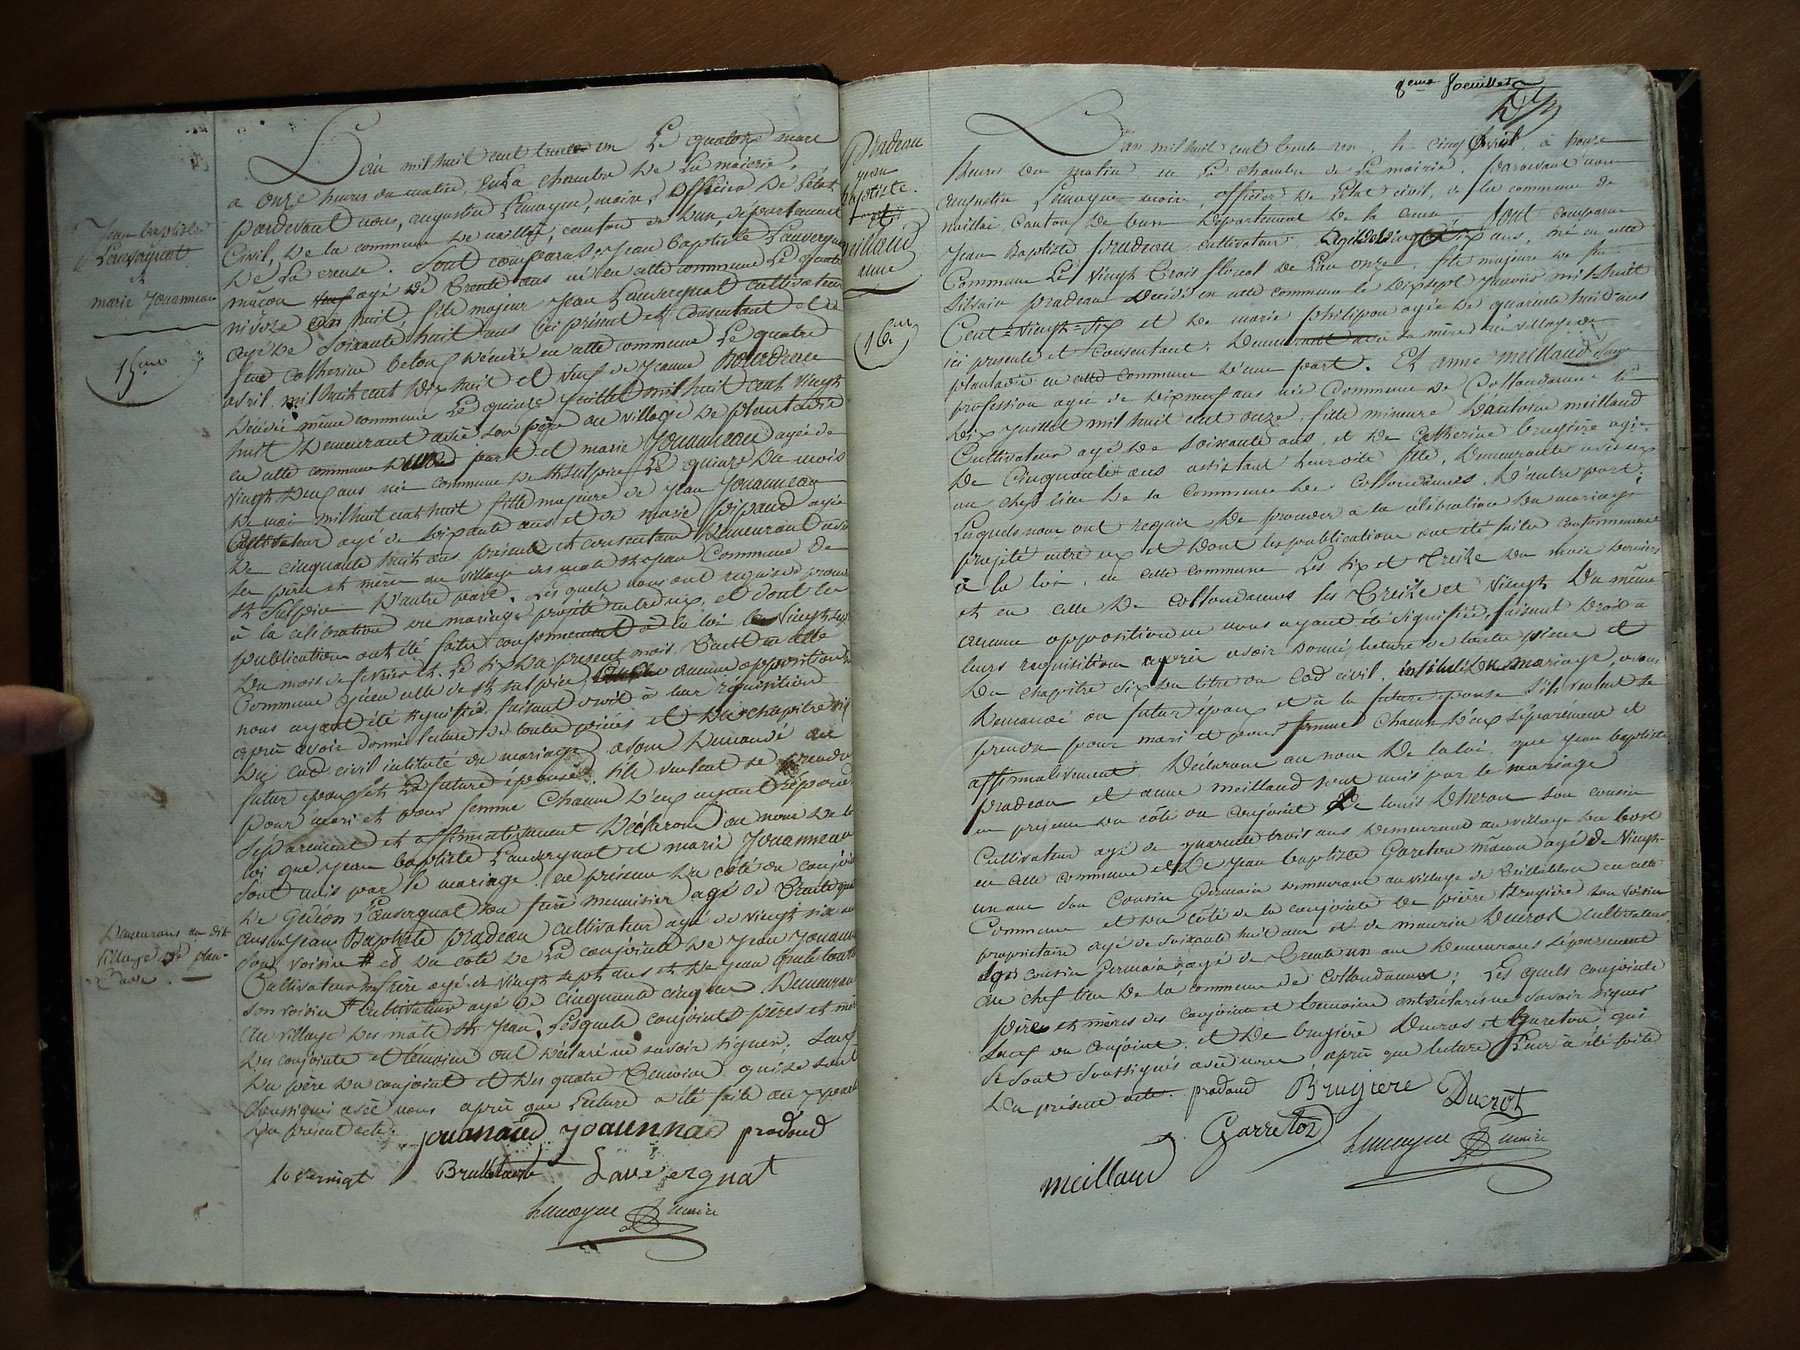 Jean baptiste
Lauvergnat
et
marie Jouanneau
15eme
L'an mil huit cent trente un Le quatorze mars
a onze heures du matin, en La chambre de La mairie,
pardevant nous, augustin Lemoyne, maire, officier de L'état
Civil, de la commune de naillat, canton de Dun, département
de La creuse. Sont comparus, Jean baptiste Lauvergnat
maçon agé de Trente ans né en cette commune Le quatre
nivose an huit fils majeur Jean Lauvergnat cultivateur
agé de Soixante huit ans ici présent et consentant et de
feue Catherine décédée en cette commune Le quatre
avril mil huit cent dix huit et veuf de Jeanne
Décédée même commune Le quinze Juillet mil huit cent vingt
huit Demeurant avec son père au village de plantadis
en cette commune D'une part et marie Jouanneau agée de
vingt Deux ans née commune de St Sulpice Le quinze du mois
De mai mil huit cent huit fille majeure de Jean Jouanneau
Cultivateur agé de soixante ans et de marie pipaud agée
De cinquante huit ans présents et consentant Demeurant avec
ses père et mère au village des mats St Jean Commune De
St Sulpice D'autre part. Les quels nous ont requis de procéder
à la célébration du mariage projeté entre eux, et dont les
publications ont été faites conformement à la loi le vingt sept
Du mois de fevrier et Le six du présent mois. Tant en cette
Commune qu'en celle de St Sulpice, aucune opposition ne
nous ayant été signifiée faisant droit à leur réquisition
après avoir donné lecture de toutes pièces et Du chapitre six
Du cod civil intitulé du mariage avons Demandé au
futur époux et à La future épouse s'ils veulent se prendre
pour mari et pour femme Chacun D'eux ayant répondu
séparément et affirmativement Déclarons au nom de la
loi que Jean baptiste Lauvergnat et marie Jouanneau
sont unis par le mariage, en présence du côté du conjoint
De Gédéon Lauvergnat son frère menuisier agé de Trente
ans et Jean Baptiste pradeau cultivateur agé de vingt six ans
son voisin # et du coté de La conjointe De Jean Jouanneau
Cultivateur son frère agé de vingt sept ans et De Jean
son voisin cultivateur agé de cinquante cinq ans Demeurant
au village Des mats St Jean. Lesquels conjoints pères et mère
Des conjoints et témoins ont Déclaré ne savoir signer, Sauf
Du père Du conjoint et Des quatre Témoins qui se sont
soussignés avec nous après que Lecture a été faite du
Du présent acte.
Demeurans au dit
village de plan-
tadis.
jouanaud joaunnad pradaud
Lavvergnat
Lemoyne maire
8eme feuillet
Pradeau
jean
baptiste.
et
meilland
anne
16e
L'an mil huit cent trente un, le cinq avril, à onze
heures du matin en La chambre de La mairie, pardevant nous
augustin Lemoyne maire, officier de l'état civil, de la commune de
naillat, Canton de Dun Département de la creuse, Sont comparus
Jean Baptiste pradeau cultivateur agé de vingt six ans, né en cette
Commune Le vingt Trois floréal de L'an onze, fils majeur de feu
Silvain pradeau Décédé en cette commune le dix sept Janvier mil huit
Cent = vingt = six et de marie philipon agée de quarante huit ans
ici presente et consentant, Demeurant avec sa mère au village de
plantadis en cette commune D'une part. Et anne meilland sans
profession agée de Dix neuf ans née Commune de Collondannes le
Dix Juillet mil huit cent onze, fille mineure D'antoine meilland
Cultivateur agé De soixante ans, et De Catherine brugière agée
De Cinquante ans assistant leur dite fille, Demeurants avec eux
au chef lieu De la Commune De Collondannes, D'autre part,
Lesquels nous ont requis De procéder à la célébration du mariage
projeté entre eux et Dont les publications ont été faites conformement
à la loi, en cette commune Les six et Treize du mois Dernier
et en celle De Collondannes les Treize et vingt Du même
aucune opposition ne nous ayant été signifiée, faisant Droit à
leurs requisition après avoir donné lecture de toutes pièces et
Du chapitre six du titre du Cod civil, intitulé Du mariage, avons
Demandé au futur époux et à la future épouse s'ils veulent se
prendre pour mari et pour femme Chacun D'eux séparément et
affirmativement Déclarons au nom De la loi, que Jean baptiste
pradeau et anne meilland sont unis par le mariage
en présence du côté du conjoint De louis Dheron son cousin
Cultivateur agé de quarante trois ans Demeurand au village Du bost
en cette commune et De Jean baptiste Gareton maçon agé De vingt
un ans son cousin Germain Demeurant au village de en cette
Commune et du côté de la conjointe De pierre Brugière son voisin
propriétaire agé de soixante huit ans et de maurice Ducrot cultivateur,
son cousin Germain agé de Trente un ans Demeurans séparement
au chef lieu De la commune de Collondannes; Les quels conjoints
pères et mères des conjoints et temoins ont déclaré ne savoir signer
sauf du conjoint, et De brugière Ducros et Gareton qui
se sont soussignés avec nous après que lecture Leur a été faite
Du présent acte. pradaud Brugiere Ducrot
Garreton
Lemoyne maire
meilland